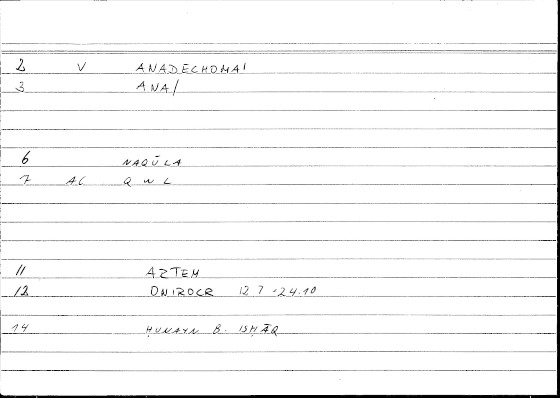 2 V ANADECHOMAI
3 ANA/
6 NAQŪLA
7 AC Q W L
11 ARTEM
12 ONIROCR 12 7 - 24.10
14 ḤUNAYN B. ISḤĀQ